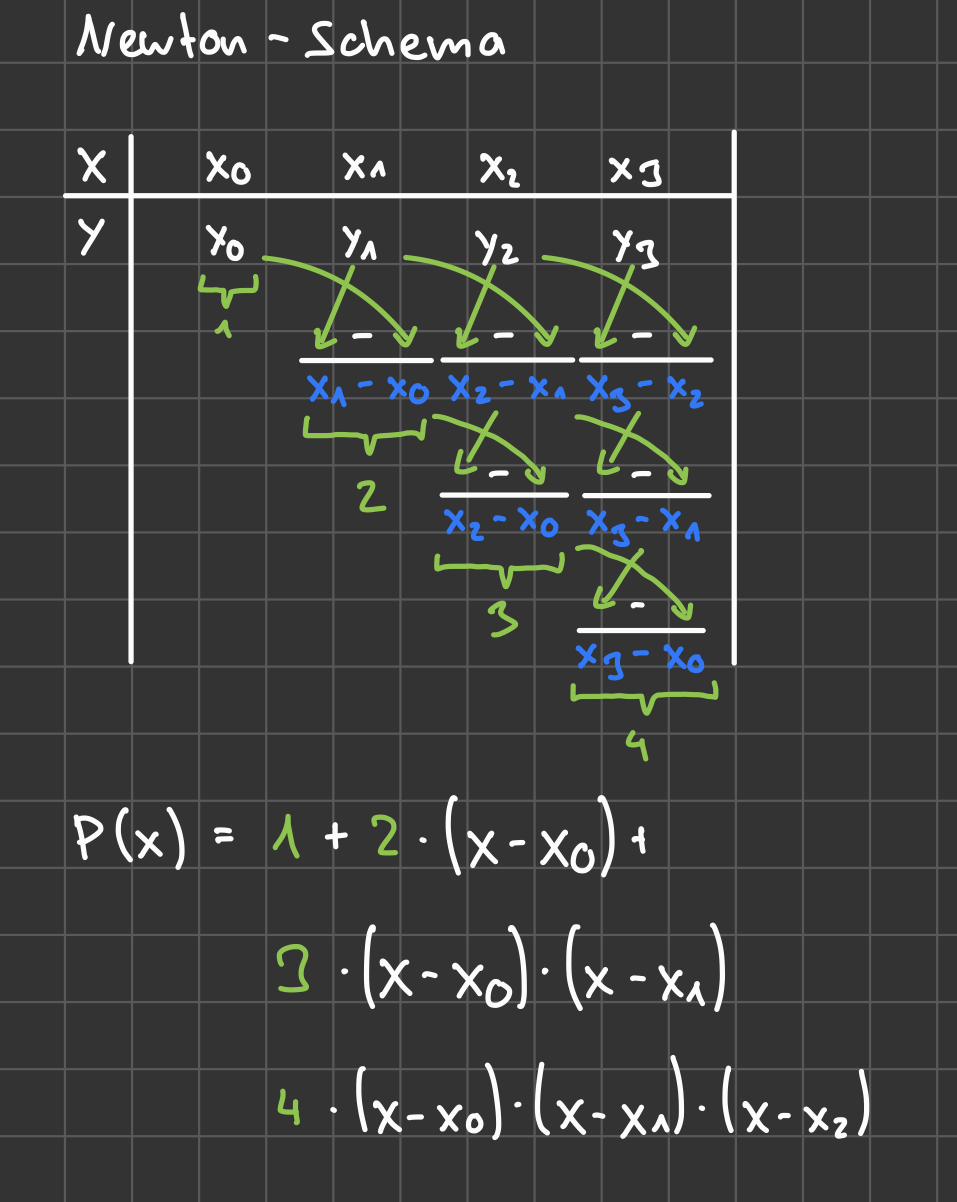 Newton - Schema
X x₀ x₁ x₂ x₃
Y y₀ y₁ y₂ y₃
1
- - -
x₁ - x₀ x₂ - x₁ x₃ - x₂
2
- -
x₂ - x₀ x₃ - x₁
3
-
x₃ - x₀
4
P(x) = 1 + 2 · (x - x₀) +
3 · (x - x₀) · (x - x₁)
4 · (x - x₀) · (x - x₁) · (x - x₂)